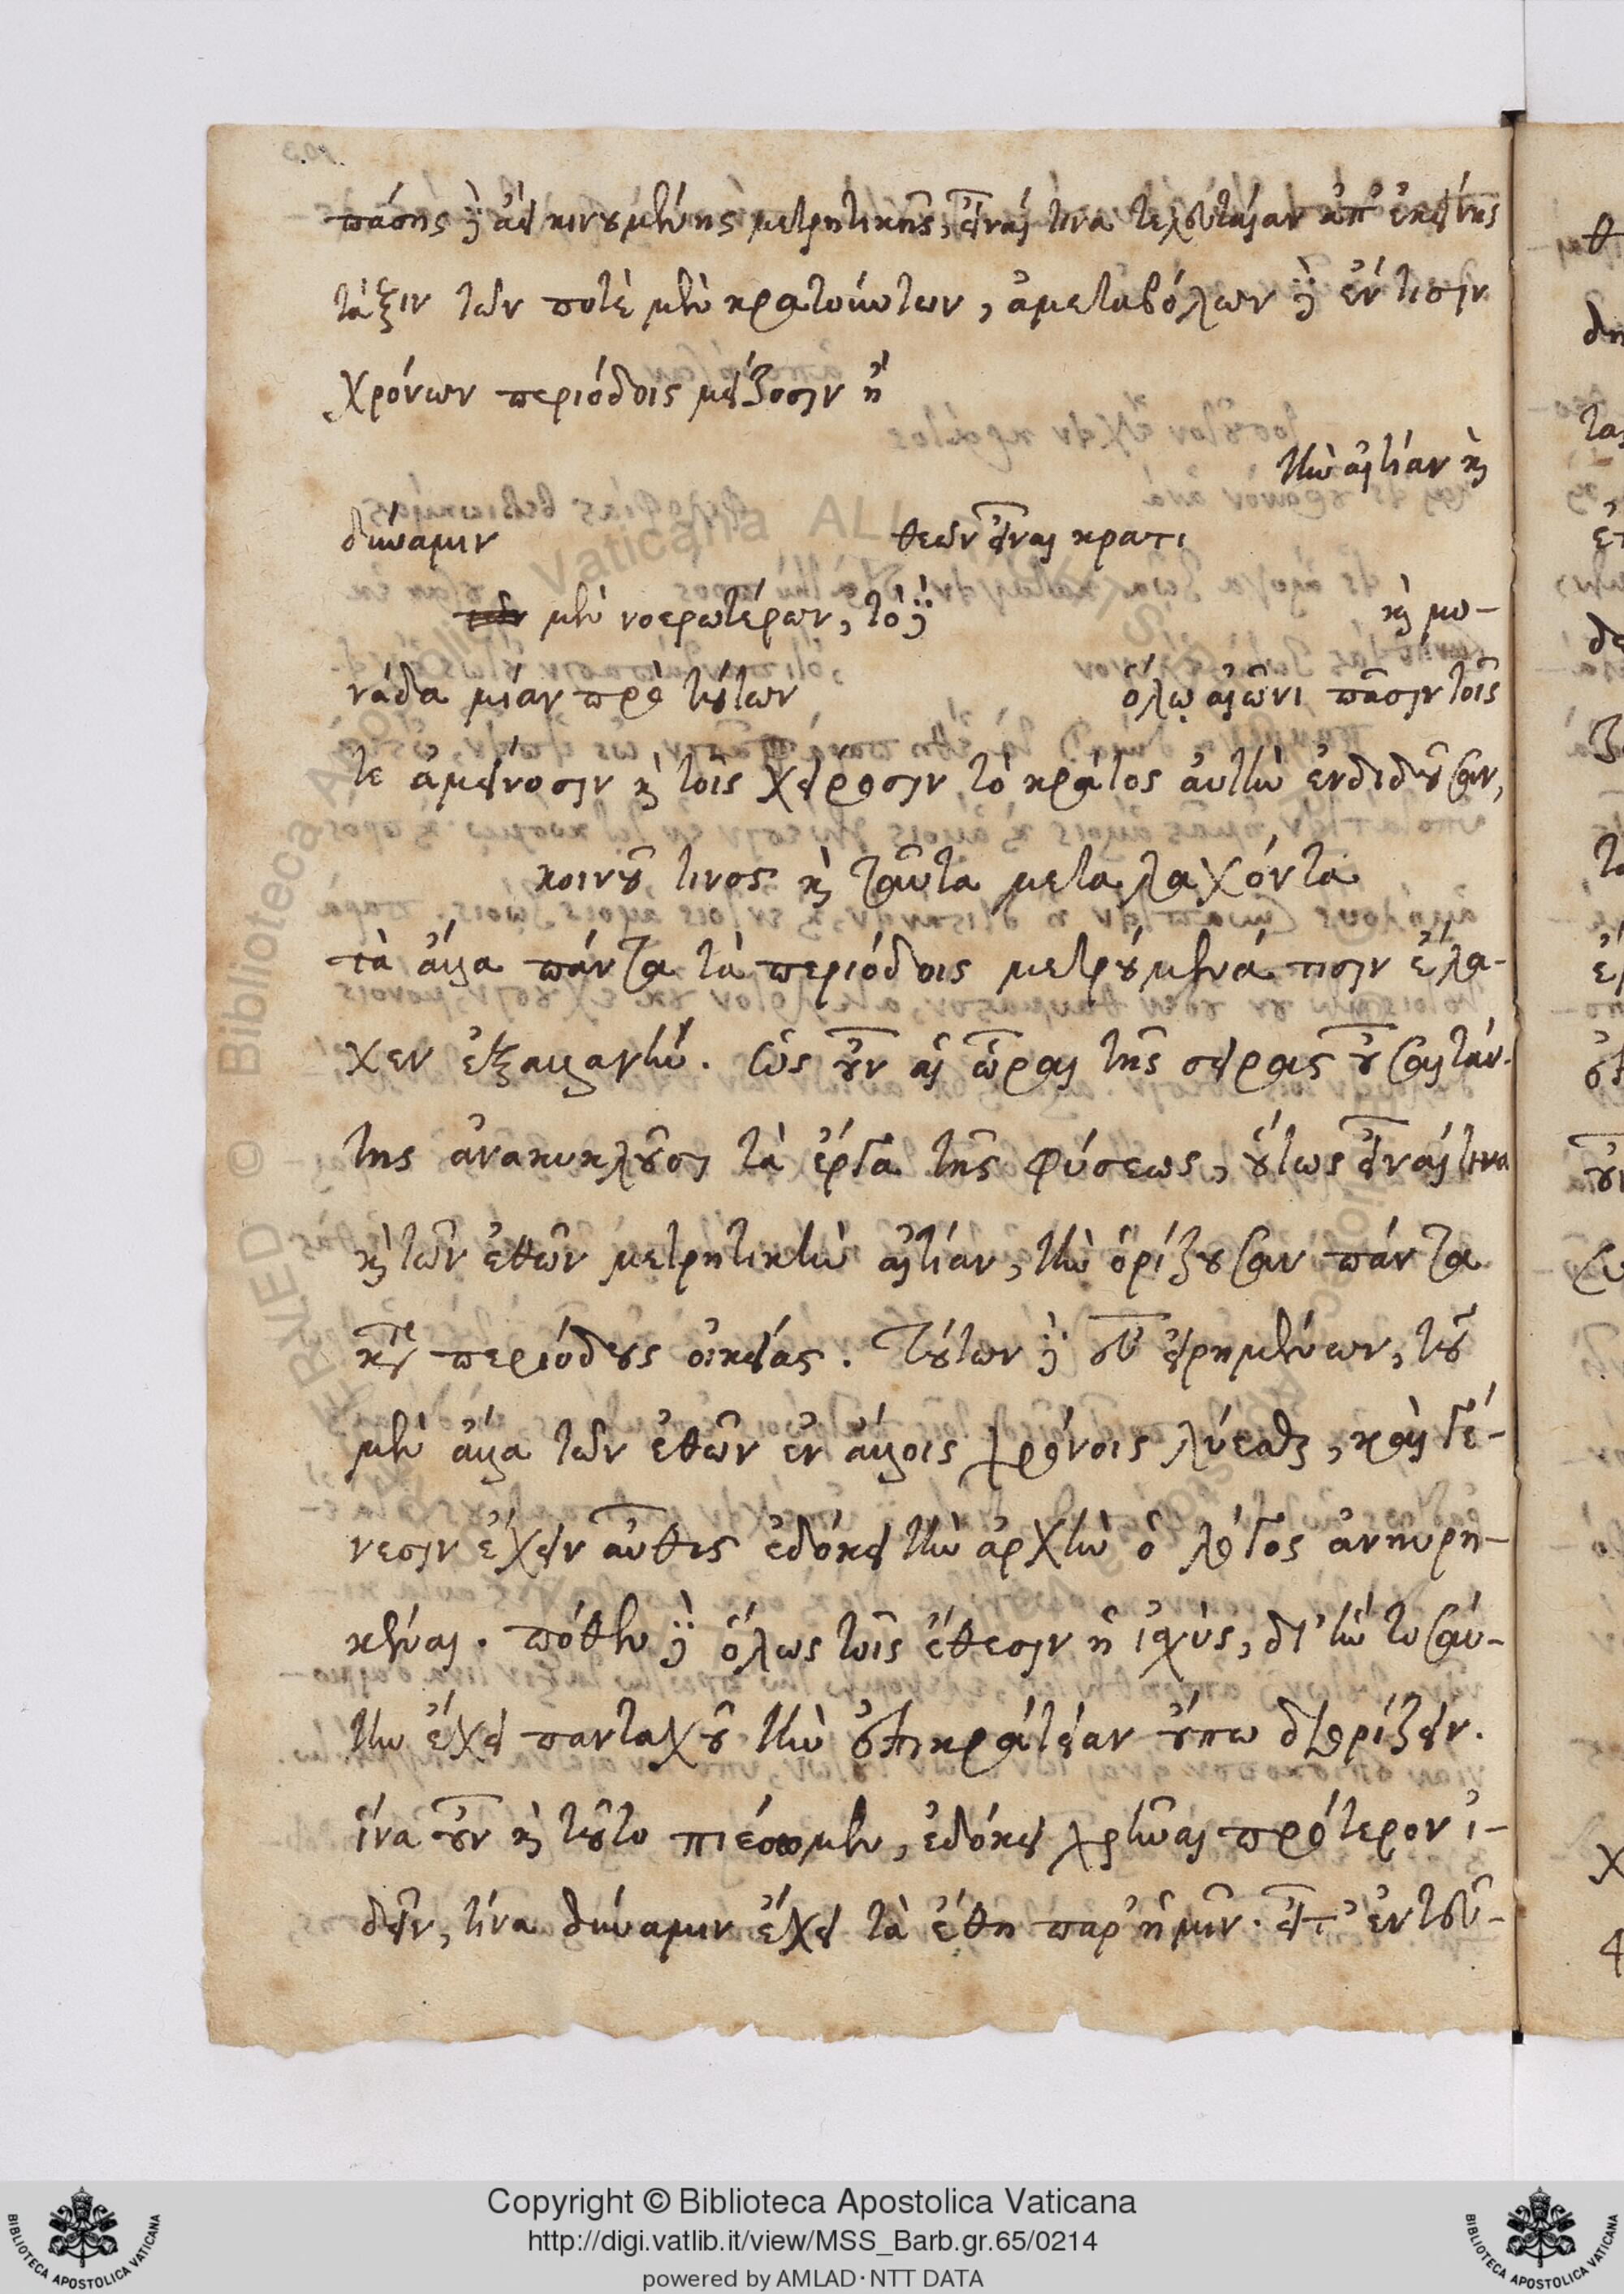 πάσης δὲ ἀεικινουμένης μετρητικῆς, εἶναί τινα τελευταίαν ἀπ' ἐκείνης
τάξιν τῶν ποτὲ μὲν κρατούντων, ἀμεταβόλων δὲ ἔν τισιν
χρόνων περιόδοις μείζοσιν ἢ
τὴν αἰτίαν καὶ
δύναμιν θεῶν εἶναι κρατι
μὲν νοερωτέρων, τὸ δὲ καὶ μο-
νάδα μίαν πρὸ τούτων ὅλῳ αἰῶνι πᾶσιν τοῖς
τε ἀμείνοσιν καὶ τοῖς χείροσιν τὸ κράτος αὐτὴν ἐνδιδοῦσαν,
κοινοῦ τινος καὶ ταῦτα μεταλαχόντα
τὰ ἄλλα πάντα τὰ περιόδοις μετρούμενά τισιν ἔλα-
χεν ἐξαλλαγήν. ὡς οὖν αἱ ὧραι τῆς σειρᾶς οὖσαι ταύ-
της ἀνακυκλοῦσι τὰ ἔργα τῆς φύσεως, οὕτως εἶναί τινα
καὶ τῶν ἐθῶν μετρητικὴν αἰτίαν, τὴν ὁρίζουσαν πάντα
κατὰ περιόδους οἰκείας. Τούτων δὲ οὖν εἰρημένων, τοῦ
μὲν ἄλλα τῶν ἐθῶν ἐν ἄλλοις χρόνοις λύεσθαι, καὶ γέ-
νεσιν ἔχειν αὖθις ἐδόκει τὴν ἀρχὴν ὁ λόγος ἀνηυρη-
κέναι. πόθεν δὲ ὅλως τοῖς ἔθεσιν ἡ ἰσχὺς, δι' ἣν τοσαύ-
την ἔχει πανταχοῦ τὴν ἐπικράτειαν οὔπω διορίζειν.
ἵνα οὖν καὶ τοῦτο ποιέσωμεν, ἐδόκει χρῆναι πρότερον ἰ-
δεῖν, τίνα δύναμιν ἔχει τὰ ἔθη παρ' ἡμῖν. εἶτ' ἐντεῦ-
Copyright © Biblioteca Apostolica Vaticana
http://digi.vatlib.it/view/MSS_Barb.gr.65/0214
powered by AMLAD·NTT DATA
BIBLIOTECA APOSTOLICA VATICANA
BIBLIOTECA APOSTOLICA VATICANA